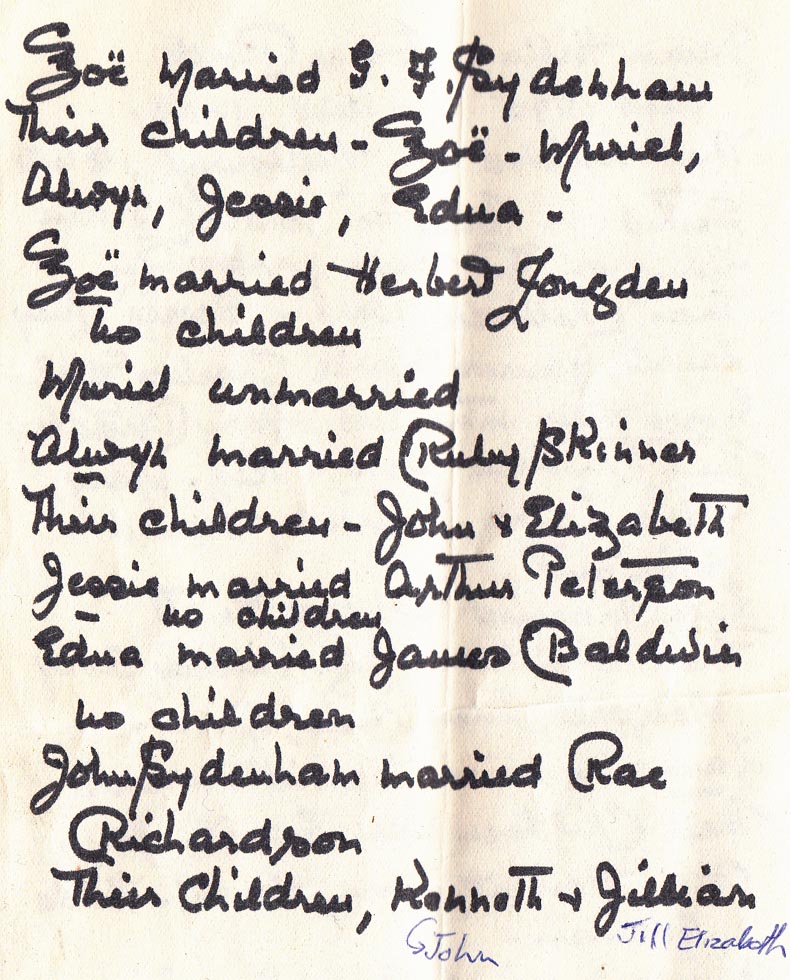 Zoë married G. F. Sydenham
Their children - Zoë - Muriel,
Alwyn, Jessie, Edna -
Zoë married Herbert Jongden
no children
Muriel unmarried
Alwyn married Ruby Skinner
Their children - John & Elizabeth
Jessie married Arthur Peterson
no children
Edna married James Baldwin
no children
John Sydenham married Rae
Richardson
Their Children, Kenneth & Jillian
John Jill Elizabeth